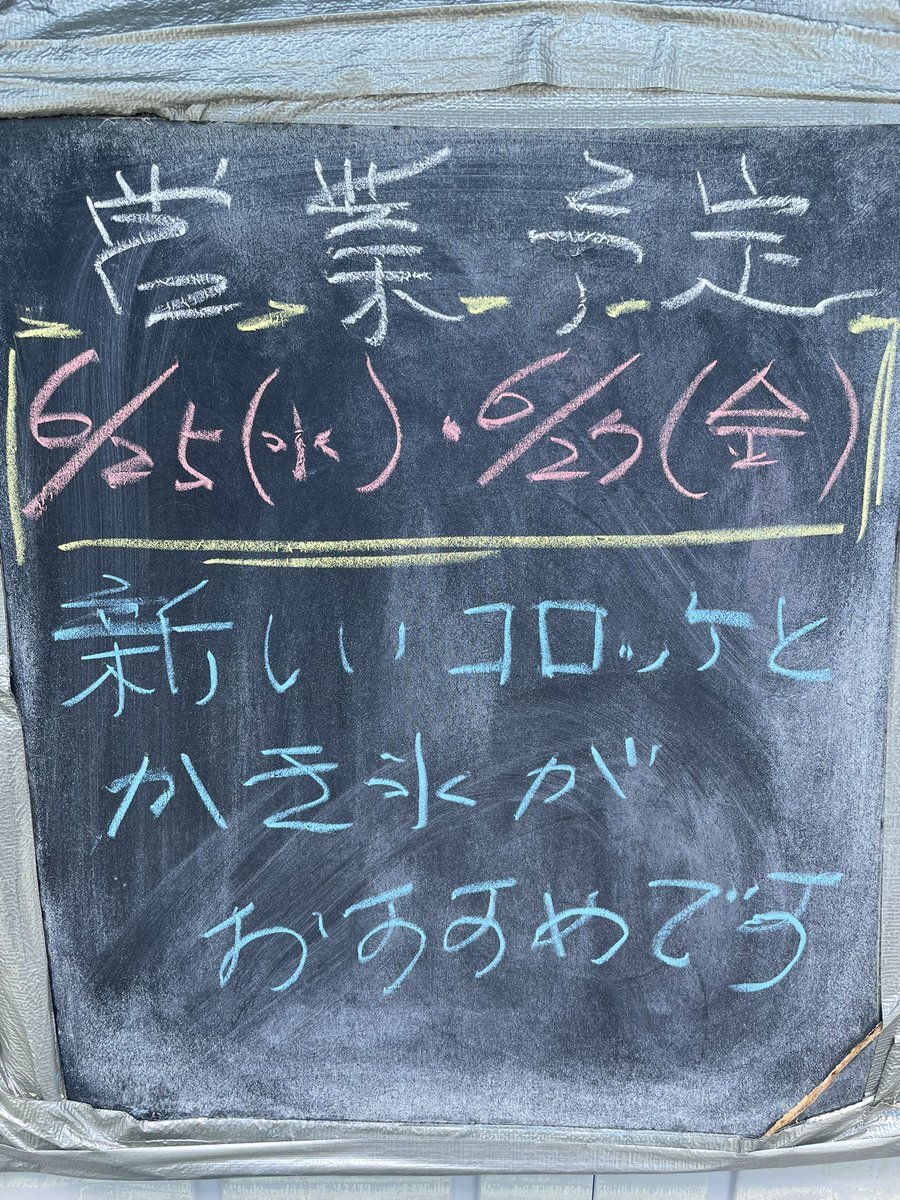 営業予定
6/25(水)・6/27(金)
新しいコロッケと
かき氷が
おすすめです